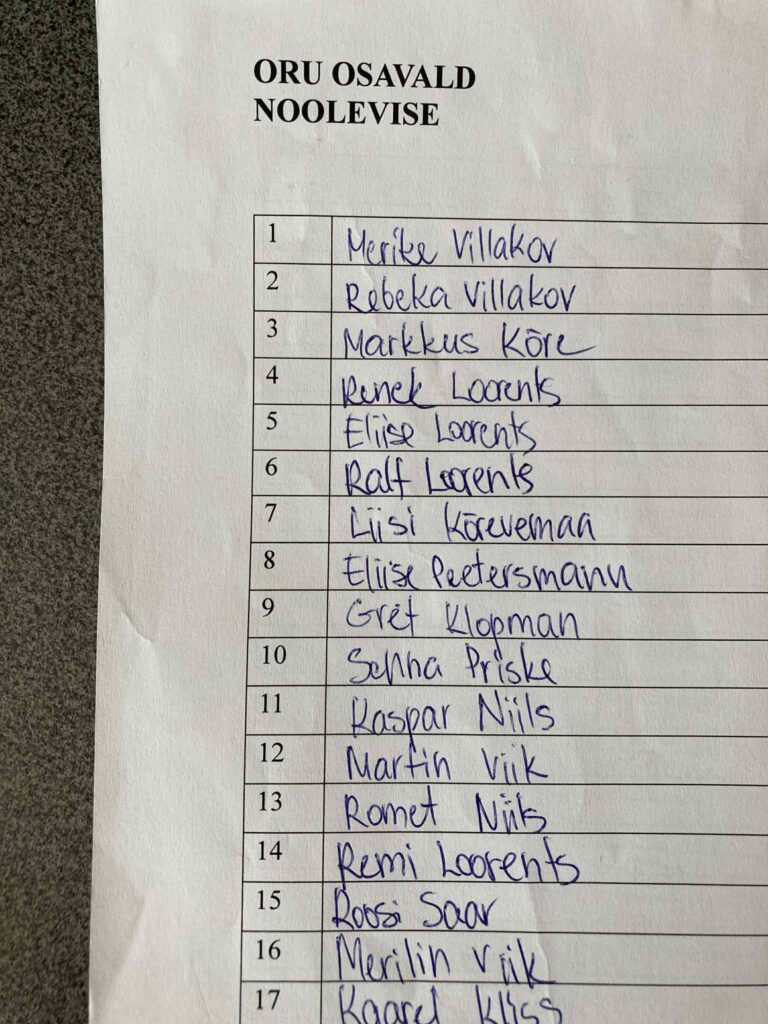 ORU OSAVALD
NOOLEVISE
1 Merike Villakov
2 Rebeka Villakov
3 Markkus Kõre
4 Renek Loorents
5 Eliise Loorents
6 Ralf Loorents
7 Liisi Kõrevemaa
8 Eliise Peetersmann
9 Gret Klopman
10 Senna Priske
11 Kaspar Niils
12 Martin Viik
13 Romet Niils
14 Remi Loorents
15 Roosi Saar
16 Merilin Viik
17 Kaarel Kliss